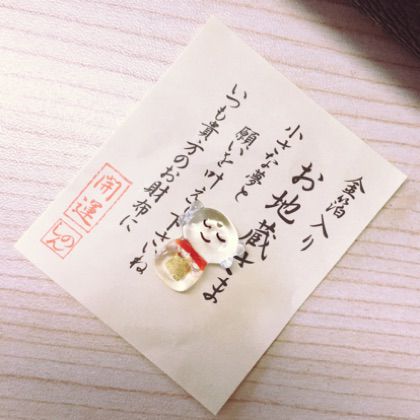 金箔入り
お地蔵さま
小さな夢と
願いを叶え下さいね
いつも貴方のお財布に
開運
しのん